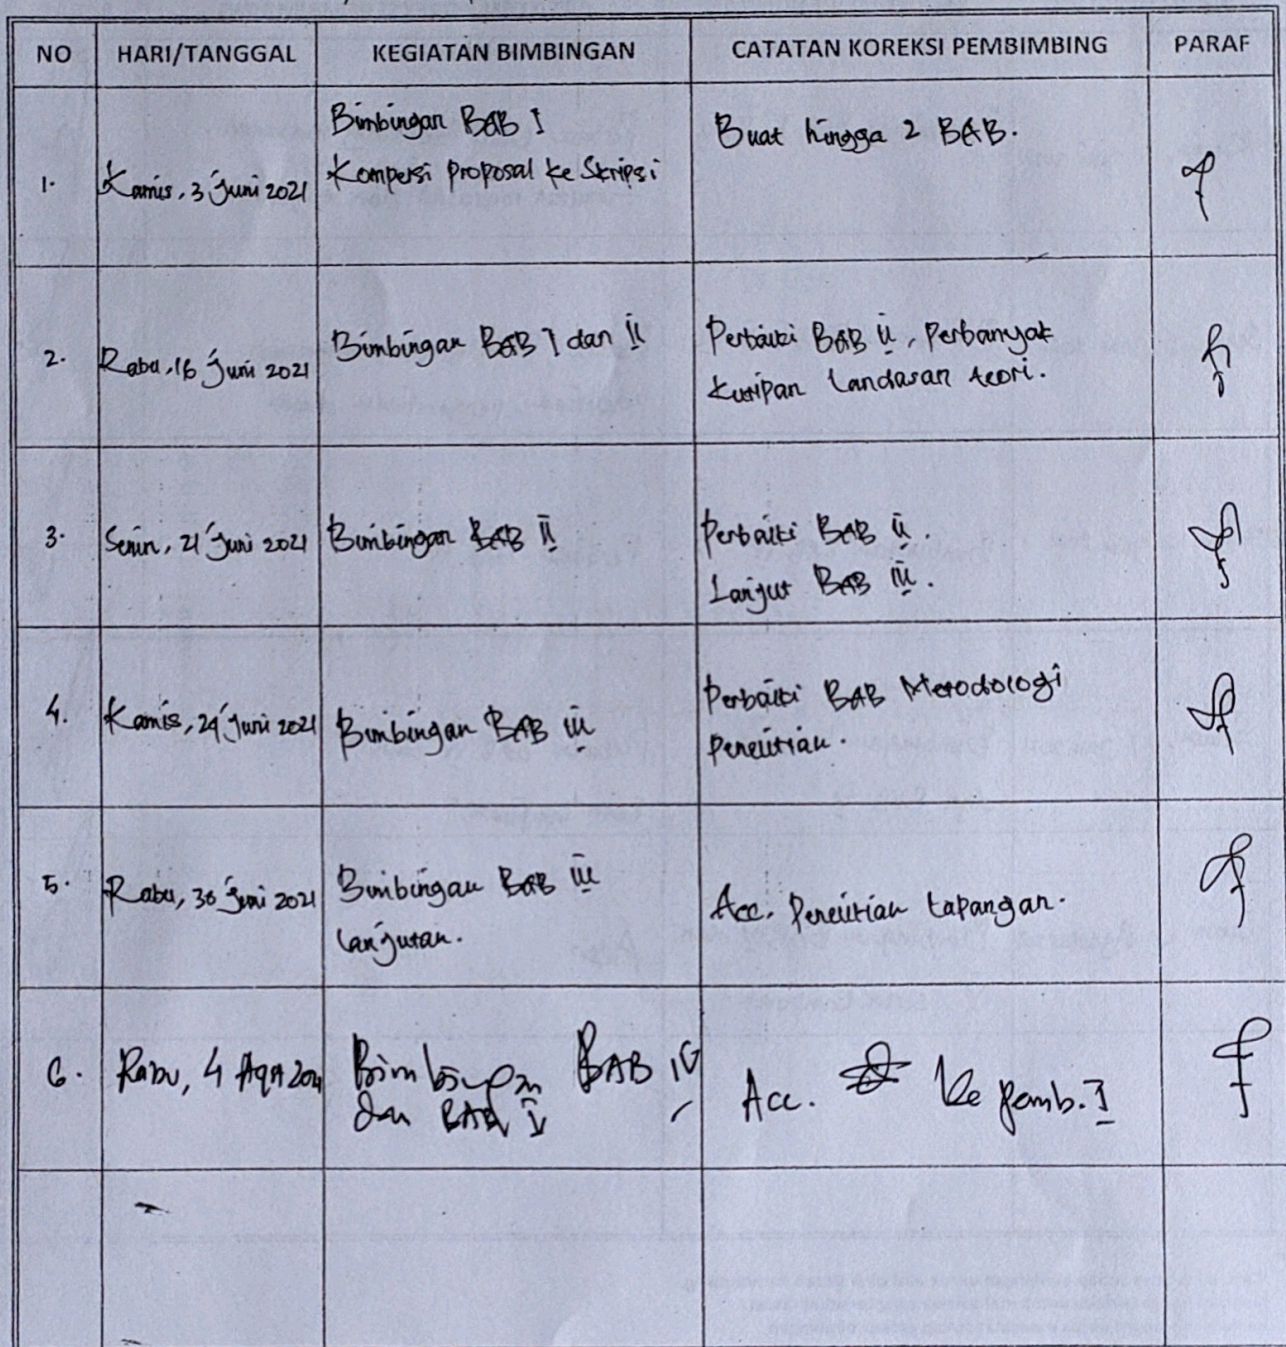 NO HARI/TANGGAL KEGIATAN BIMBINGAN CATATAN KOREKSI PEMBIMBING PARAF
1. Kamis, 3 Juni 2021
Bimbingan BAB I
Kompersi proposal ke Skripsi
Buat hingga 2 BAB.
2. Rabu, 16 Juni 2021
Bimbingan BAB I dan II
Perbaiki BAB II, Perbanyak
Kutipan Landasan teori.
3. Senin, 21 Juni 2021
Bimbingan BAB II
Perbaiki BAB II.
Lanjut BAB III.
4. Kamis, 24 Juni 2021
Bimbingan BAB III
Perbaiki BAB Metodologi
Penelitian.
5. Rabu, 30 Juni 2021
Bimbingan BAB III
Lanjutan.
Acc. Penelitian Lapangan.
6. Rabu, 4
Bimbingan BAB IV
dan BAB V
Acc. ke pemb. I